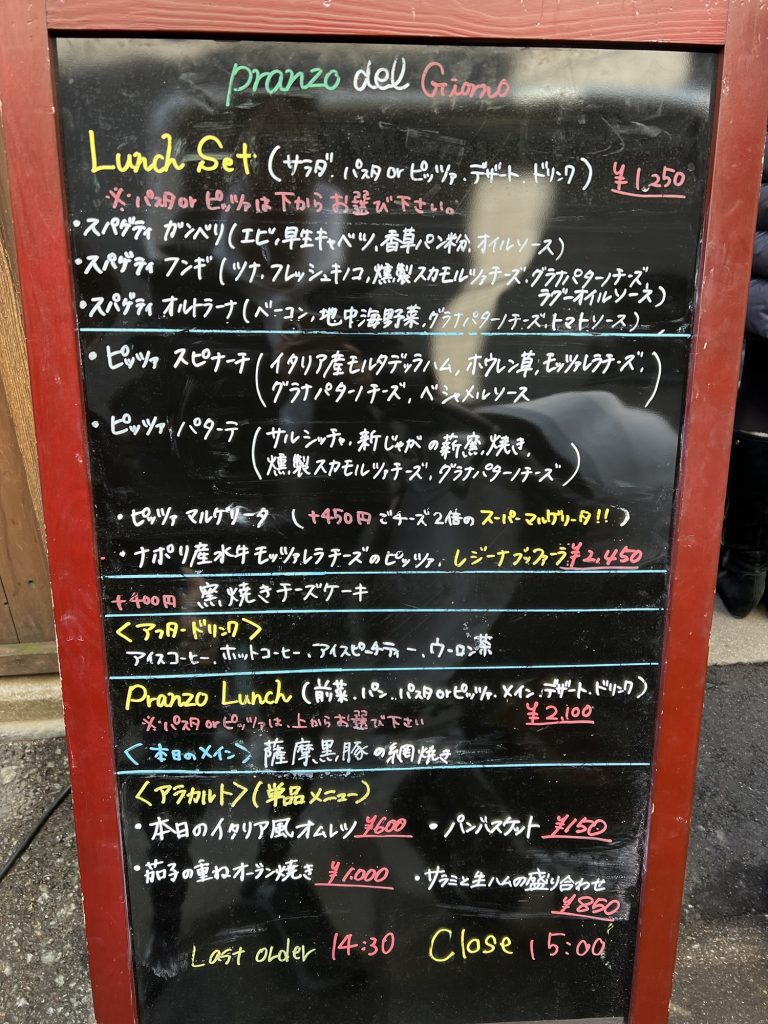 Pranzo del Giorno
Lunch Set (サラダ.パスタ or ピッツァ.デザート.ドリンク) ¥1,250
※パスタ or ピッツァは下からお選び下さい。
・スパゲティ ガンベリ(エビ,早生キャベツ,香草パン粉,オイルソース)
・スパゲティ フンギ(ツナ,フレッシュキノコ,燻製スカモルツァチーズ.グラナパダーノチーズ
ラグーオイルソース)
・スパゲティ オルトラーナ(ベーコン,地中海野菜,グラナパダーノチーズ.トマトソース)
・ピッツァ スピナーチ(イタリア産モルタデッラハム,ホウレン草,モッツァレラチーズ,
グラナパダーノチーズ,ベシャメルソース)
・ピッツァ パターテ(サルシッチャ.新じゃがの薪窯焼き,
燻製スカモルツァチーズ,グラナパダーノチーズ)
・ピッツァ マルゲリータ (+450円でチーズ2倍のスーパーマルゲリータ!!)
・ナポリ産水牛モッツァレラチーズのピッツァ.レジーナブッファーラ ¥2,450
+400円 窯焼きチーズケーキ
<アフタードリンク>
アイスコーヒー、ホットコーヒー、アイスピーチティー、ウーロン茶
Pranzo Lunch (前菜.パン.パスタ or ピッツァ.メイン.デザート.ドリンク)
※パスタ or ピッツァは、上からお選び下さい ¥2,100
<本日のメイン> 薩摩黒豚の網焼き
<アラカルト>(単品メニュー)
・本日のイタリア風オムレツ ¥600 ・パンバスケット ¥150
・茄子の重ねオーブン焼き ¥1.000 ・サラミと生ハムの盛り合わせ
¥850
Last order 14:30 Close 15:00